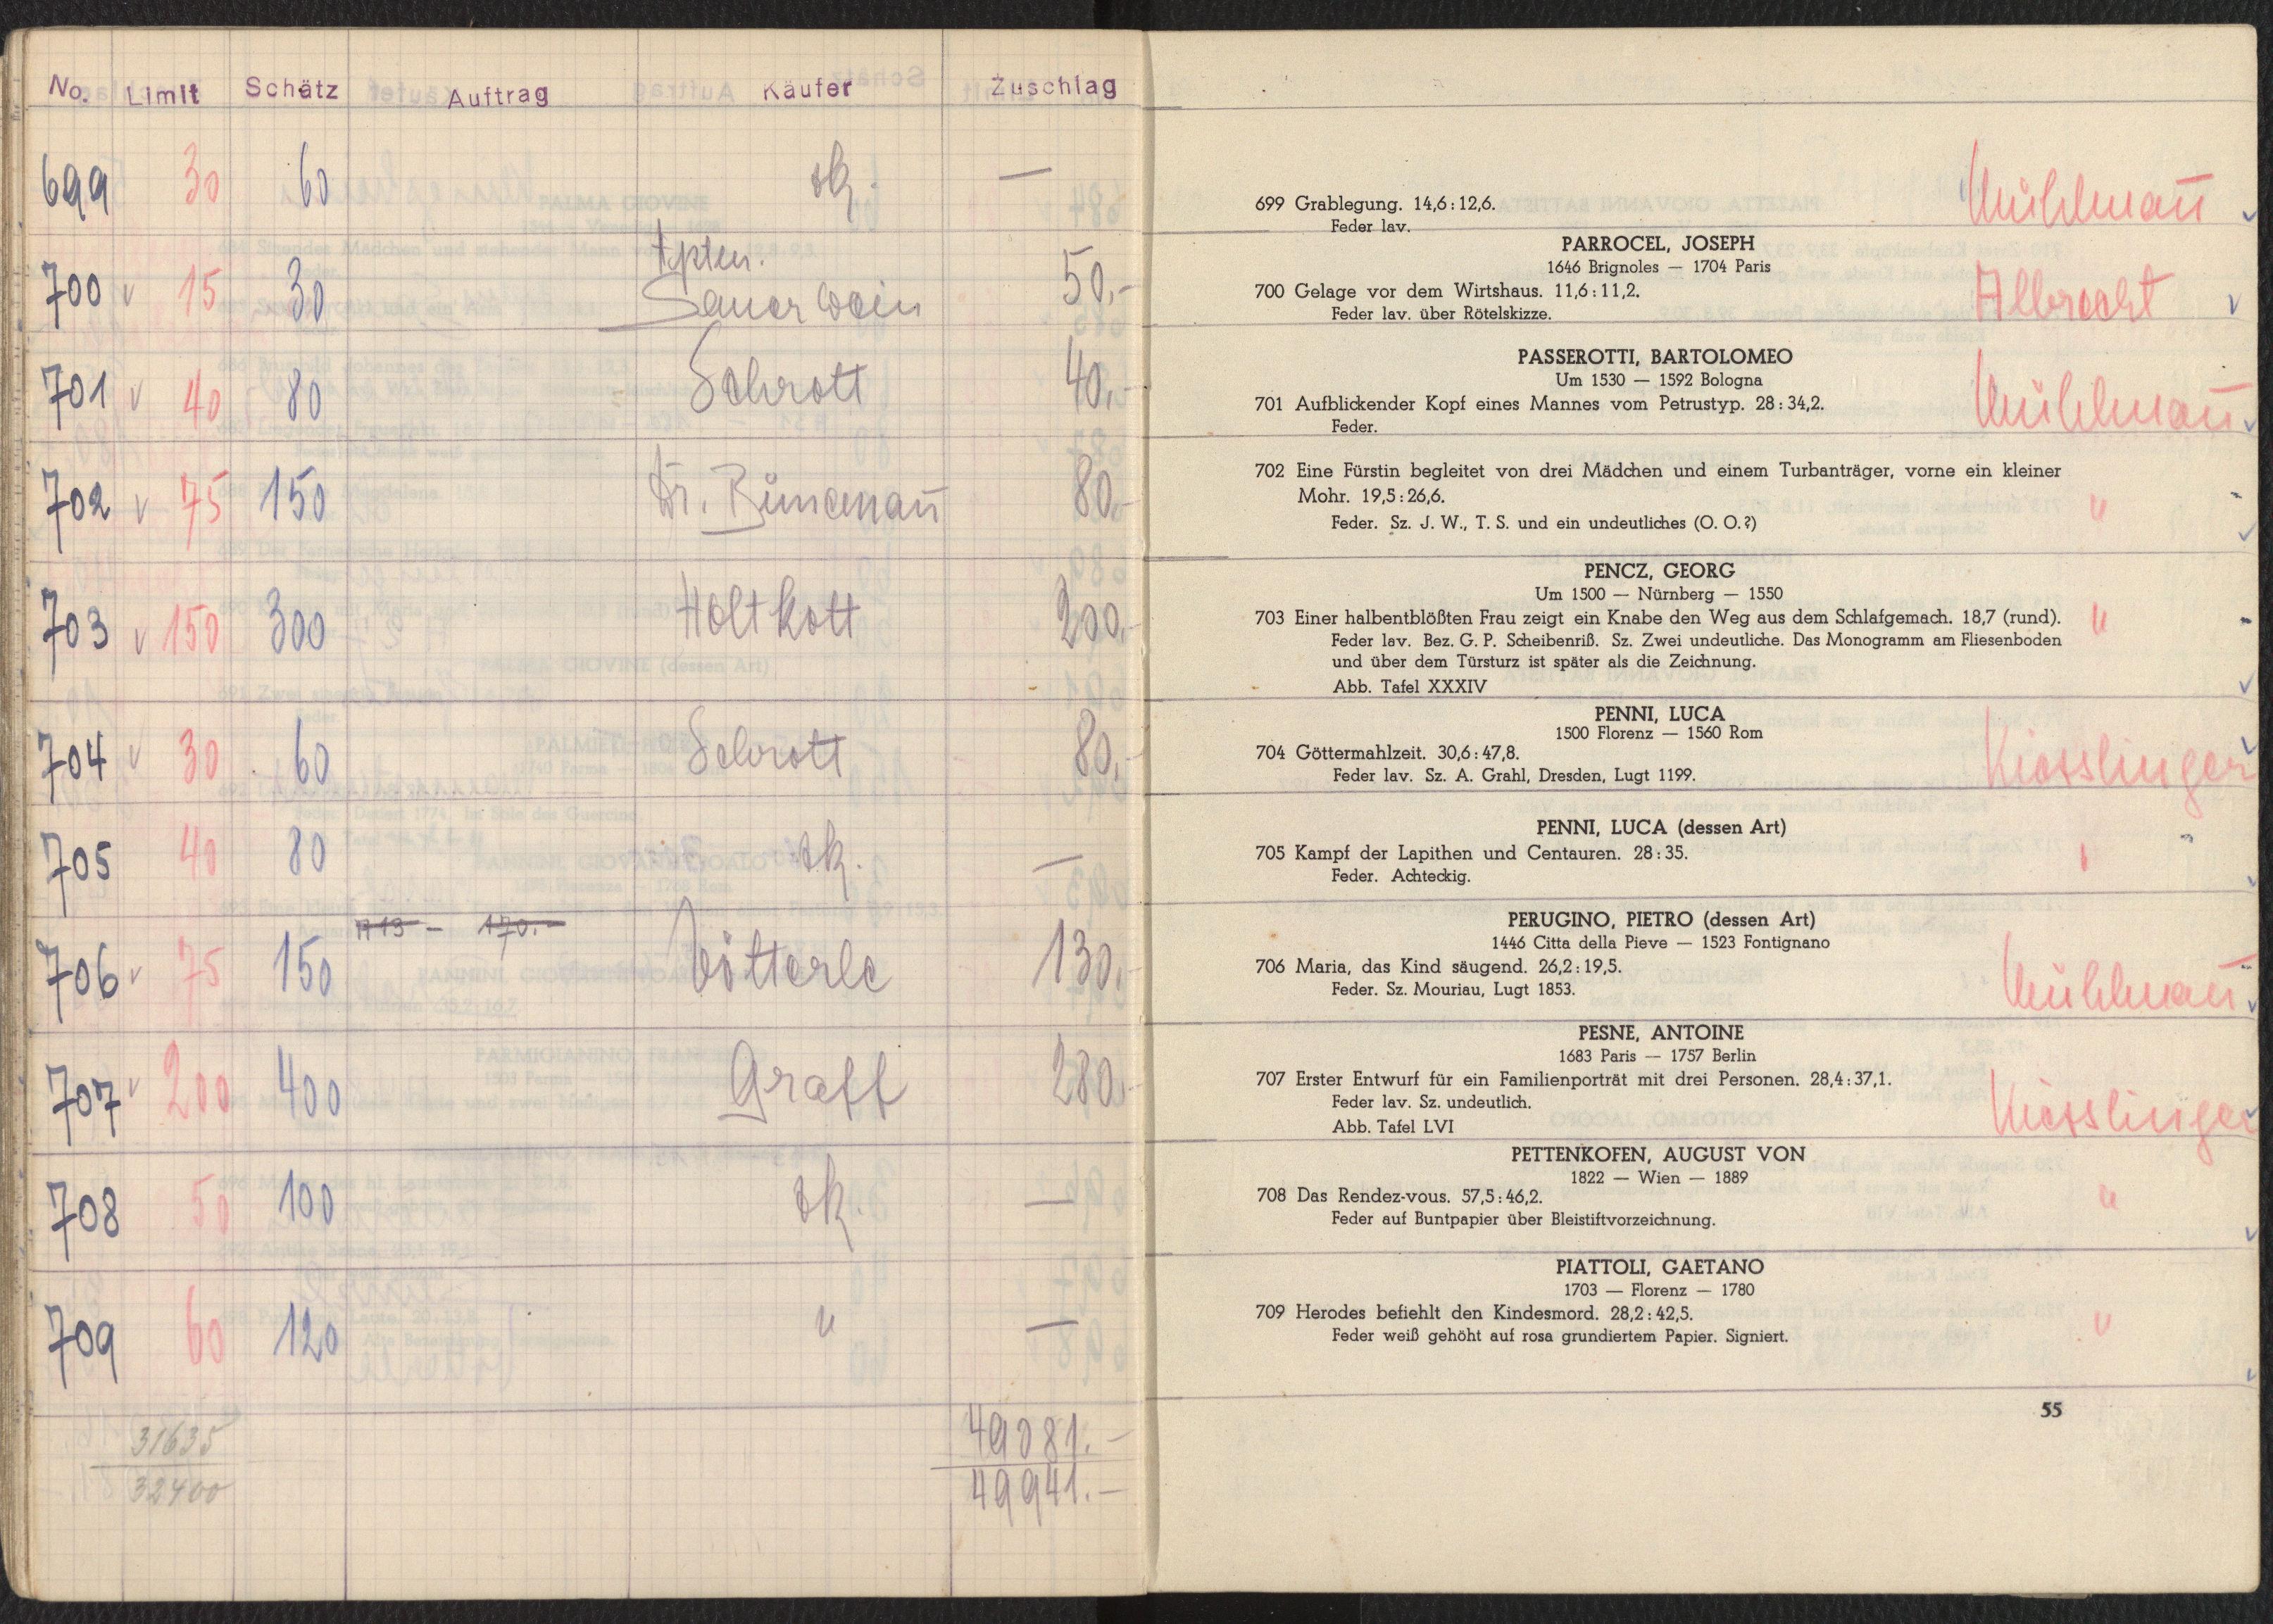 No. Limit Schätz Auftrag Käufer Zuschlag
699 30 60 —
700 v 15 30 Sauerwein 50,-
701 v 40 80 Schrott 40,-
702 v 75 150 Dr. Bünemañ 80,-
703 v 150 300 Holtkott 200,-
704 v 30 60 Schrott 80,-
705 40 80 —
170.-
706 v 75 150 Vötterle 130,-
707 v 200 400 Graff 280,-
708 50 100 —
709 60 120 " —
31635 49081.-
32400 49941.-
699 Grablegung. 14,6:12,6. Mühlmañ
Feder lav.
PARROCEL, JOSEPH
1646 Brignoles — 1704 Paris
700 Gelage vor dem Wirtshaus. 11,6:11,2. Albrecht
Feder lav. über Rötelskizze.
PASSEROTTI, BARTOLOMEO
Um 1530 — 1592 Bologna
701 Aufblickender Kopf eines Mannes vom Petrustyp. 28:34,2. Mühlmañ
Feder.
702 Eine Fürstin begleitet von drei Mädchen und einem Turbanträger, vorne ein kleiner
Mohr. 19,5:26,6. "
Feder. Sz. J. W., T. S. und ein undeutliches (O. O.?)
PENCZ, GEORG
Um 1500 — Nürnberg — 1550
703 Einer halbentblößten Frau zeigt ein Knabe den Weg aus dem Schlafgemach. 18,7 (rund). "
Feder lav. Bez. G. P. Scheibenriß. Sz. Zwei undeutliche. Das Monogramm am Fliesenboden
und über dem Türsturz ist später als die Zeichnung.
Abb. Tafel XXXIV
PENNI, LUCA
1500 Florenz — 1560 Rom
704 Göttermahlzeit. 30,6:47,8. Kiesslinger
Feder lav. Sz. A. Grahl, Dresden, Lugt 1199.
PENNI, LUCA (dessen Art)
705 Kampf der Lapithen und Centauren. 28:35. "
Feder. Achteckig.
PERUGINO, PIETRO (dessen Art)
1446 Citta della Pieve — 1523 Fontignano
706 Maria, das Kind säugend. 26,2:19,5. Mühlmañ
Feder. Sz. Mouriau, Lugt 1853.
PESNE, ANTOINE
1683 Paris — 1757 Berlin
707 Erster Entwurf für ein Familienporträt mit drei Personen. 28,4:37,1. Kiesslinger
Feder lav. Sz. undeutlich.
Abb. Tafel LVI
PETTENKOFEN, AUGUST VON
1822 — Wien — 1889
708 Das Rendez-vous. 57,5:46,2. "
Feder auf Buntpapier über Bleistiftvorzeichnung.
PIATTOLI, GAETANO
1703 — Florenz — 1780
709 Herodes befiehlt den Kindesmord. 28,2:42,5. "
Feder weiß gehöht auf rosa grundiertem Papier. Signiert.
55